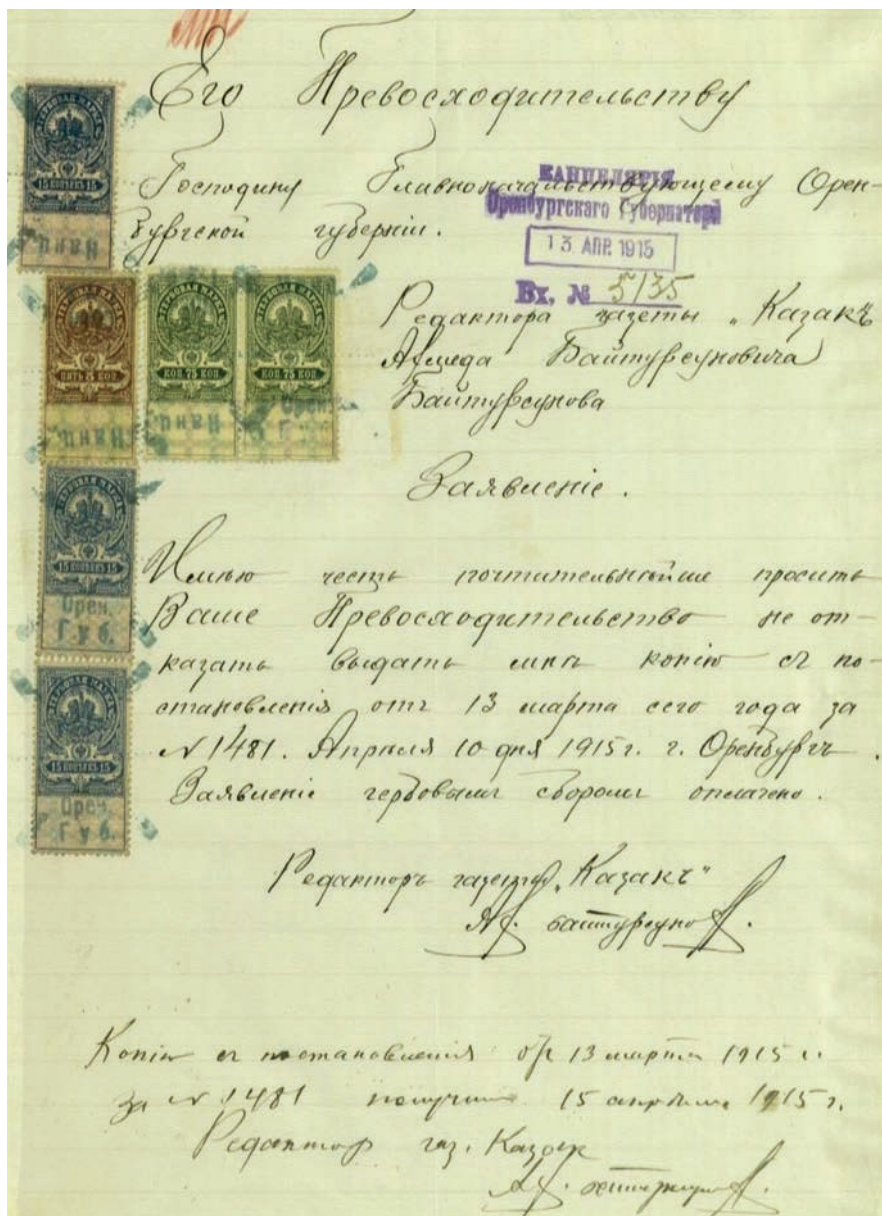 Его Превосходительству
Господину Главноначальствующему Орен-
бургской губернiи.
КАНЦЕЛЯРIЯ
Оренбургскаго Губернатора
13 АПР. 1915
Вх. № 5135
Редактора газеты „Казакъ
Ахмеда Байтурсуновича
Байтурсунова
Заявленiе.
Имѣю честь почтительнѣйше просить
Ваше Превосходительство не от-
казать выдать мнѣ копiю съ по-
становленiя отъ 13 марта сего года за
№ 1481. Апрѣля 10 дня 1915 г. г. Оренбургъ.
Заявленiе гербовымъ сборомъ оплачено.
Редакторъ газеты „Казакъ"
А. Байтурсуновъ.
Копiю съ постановленiя от 13 марта 1915 г.
за № 1481 получилъ 15 апрѣля 1915 г.
Редактор газ. Казак
ГЕРБОВАЯ МАРКА
15 КОПѢЕКЪ 15
Канц.
ГЕРБОВАЯ МАРКА
ПЯТЬ 5 КОП
Канц.
ГЕРБОВАЯ МАРКА
КОП. 75 КОП.
Канц.
ГЕРБОВАЯ МАРКА
КОП. 75 КОП.
Орен.
ГЕРБОВАЯ МАРКА
15 КОПѢЕКЪ 15
Орен.
Губ.
ГЕРБОВАЯ МАРКА
15 КОПѢЕКЪ 15
Орен.
Губ.